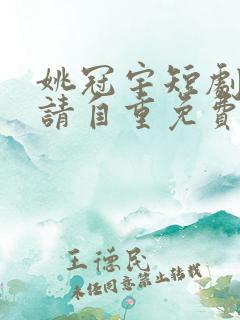 姚冠宇短劇
請自重免費
王德民
未经同意禁止转载